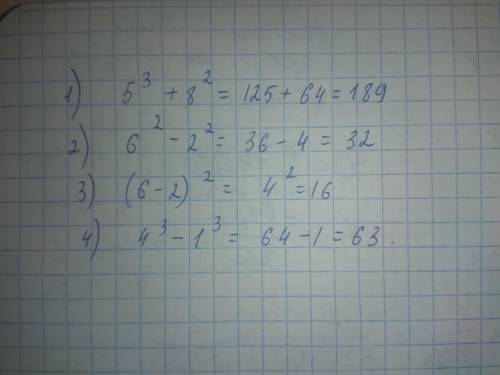 1) 5³ + 8² = 125 + 64 = 189
2) 6² - 2² = 36 - 4 = 32
3) (6-2)² = 4² = 16
4) 4³ - 1³ = 64 - 1 = 63.